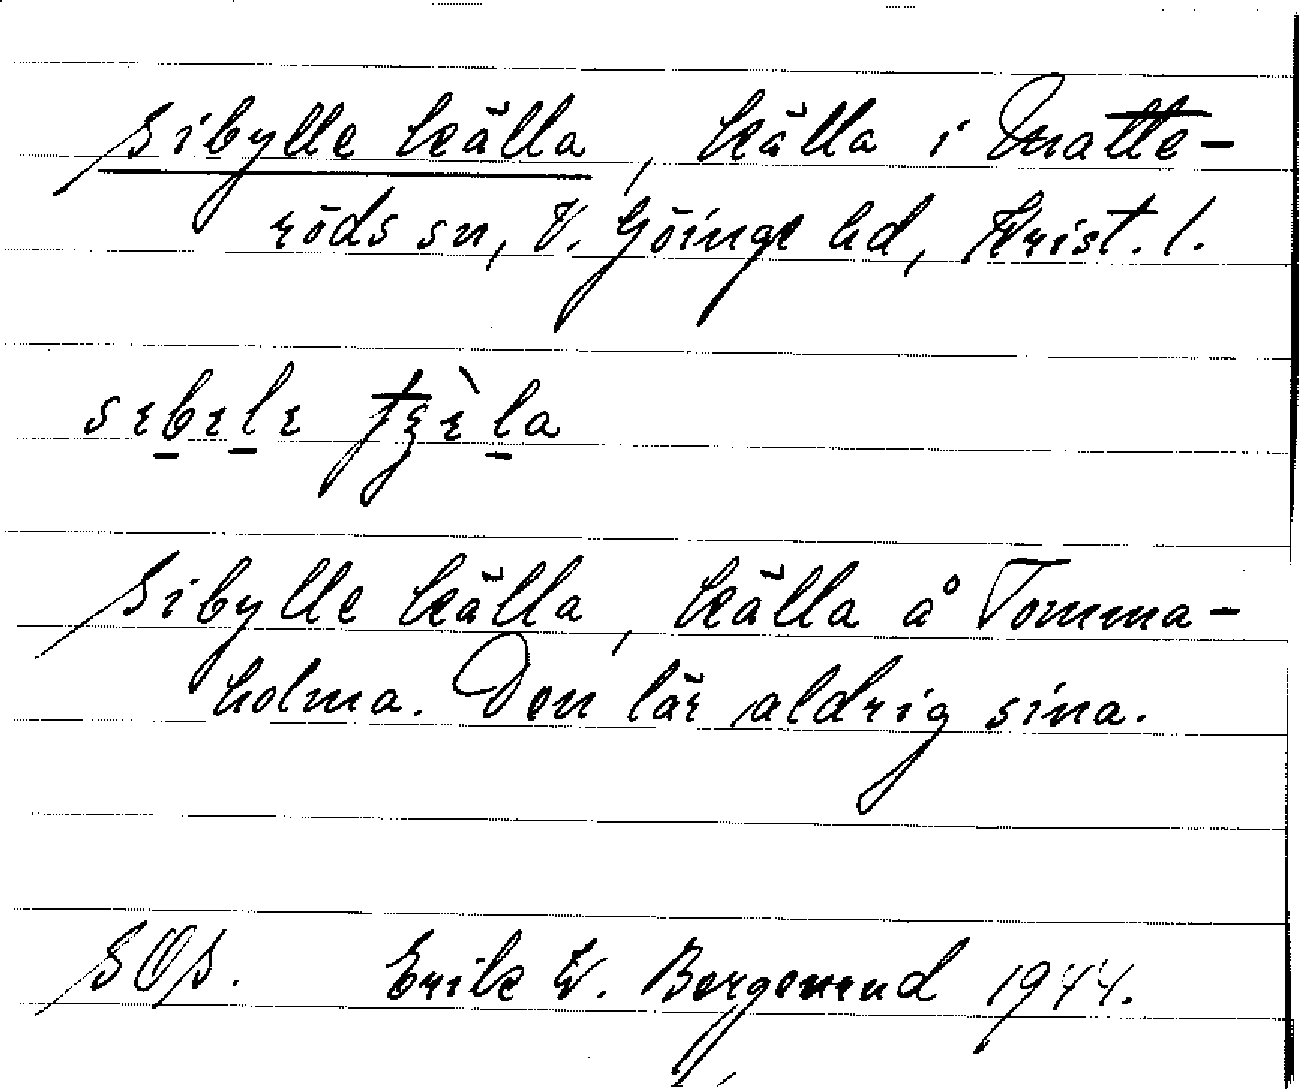 Sibylle källa, källa i Matte-
röds sn, V. Göinge hd, Krist. l.
Sibylle källa, källa å Tomma-
holma. Den lär aldrig sina.
SOS. Erik W. 1944.